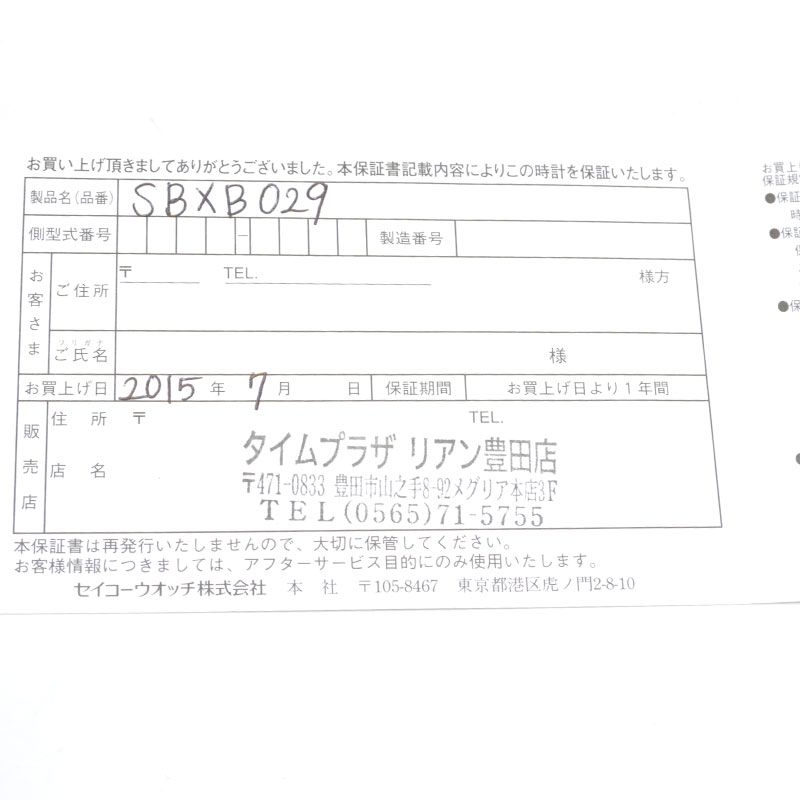 お買い上げ頂きましてありがとうございました。本保証書記載内容によりこの時計を保証いたします。
製品名（品番） SBXB029
側型式番号 － 製造番号
お客さま
ご住所 〒 TEL. 様方
フリガナ
ご氏名 様
お買上げ日 2015年 7月 日 保証期間 お買上げ日より1年間
販売店
住所 〒 TEL.
店名
タイムプラザ リアン豊田店
〒471-0833 豊田市山之手8-92メグリア本店3F
TEL(0565)71-5755
本保証書は再発行いたしませんので、大切に保管してください。
お客様情報につきましては、アフターサービス目的にのみ使用いたします。
セイコーウオッチ株式会社 本 社 〒105-8467 東京都港区虎ノ門2-8-10
お買上
保証規
●保証
時
●保証
●保